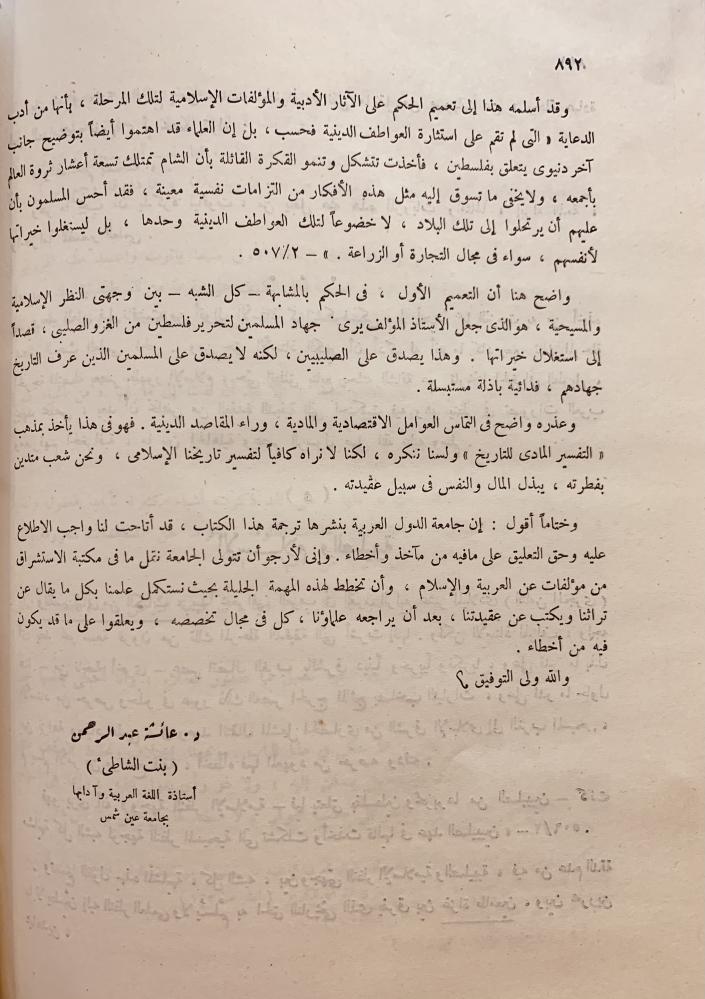 ٨٩٢
وقد أسلمه هذا إلى تعميم الحكم على الآثار الأدبية والمؤلفات الإسلامية لتلك المرحلة ، بأنها من أدب
الدعاية « التى لم تقم على استثارة العواطف الدينية فحسب ، بل إن العلماء قد اهتموا أيضاً بتوضيح جانب
آخر دنيوى يتعلق بفلسطين ، فأخذت تتشكل وتنمو الفكرة القائلة بأن الشام تمتلك تسعة أعشار ثروة العالم
بأجمعه ، ولا يخفى ما تسوق إليه مثل هذه الأفكار من التزامات نفسية معينة ، فقد أحس المسلمون بأن
عليهم أن يرتحلوا إلى تلك البلاد ، لا خضوعاً لتلك العواطف الدينية وحدها ، بل ليستغلوا خيراتها
لأنفسهم ، سواء فى مجال التجارة أو الزراعة . » – ٥٠٧/٢ .
واضح هنا أن التعميم الأول ، فى الحكم بالمشابهة – كل الشبه – بين وجهتى النظر الإسلامية
والمسيحية ، هو الذى جعل الأستاذ المؤلف يرى جهاد المسلمين لتحرير فلسطين من الغزو الصليبى ، قصداً
إلى استغلال خيراتها . وهذا يصدق على الصليبيين ، لكنه لا يصدق على المسلمين الذين عرف التاريخ
جهادهم ، فدائية باذلة مستبسلة .
وعذره واضح فى التماس العوامل الاقتصادية والمادية ، وراء المقاصد الدينية . فهو فى هذا يأخذ بمذهب
« التفسير المادى للتاريخ » ولسنا ننكره ، لكنا لا نراه كافياً لتفسير تاريخنا الإسلامى ، ونحن شعب متدين
بفطرته ، يبذل المال والنفس فى سبيل عقيدته .
وختاماً أقول : إن جامعة الدول العربية بنشرها ترجمة هذا الكتاب ، قد أتاحت لنا واجب الاطلاع
عليه وحق التعليق على مافيه من مآخذ وأخطاء . وإنى لأرجو أن تتولى الجامعة نقل ما فى مكتبة الاستشراق
من مؤلفات عن العربية والإسلام ، وأن تخطط لهذه المهمة الجليلة بحيث نستكمل علمنا بكل ما يقال عن
تراثنا ويكتب عن عقيدتنا ، بعد أن يراجعه علماؤنا ، كل فى مجال تخصصه ، ويعلقوا على ما قد يكون
فيه من أخطاء .
والله ولى التوفيق ؟
د. عائشة عبد الرحمن
( بنت الشاطىء )
أستاذة اللغة العربية وآدابها
بجامعة عين شمس